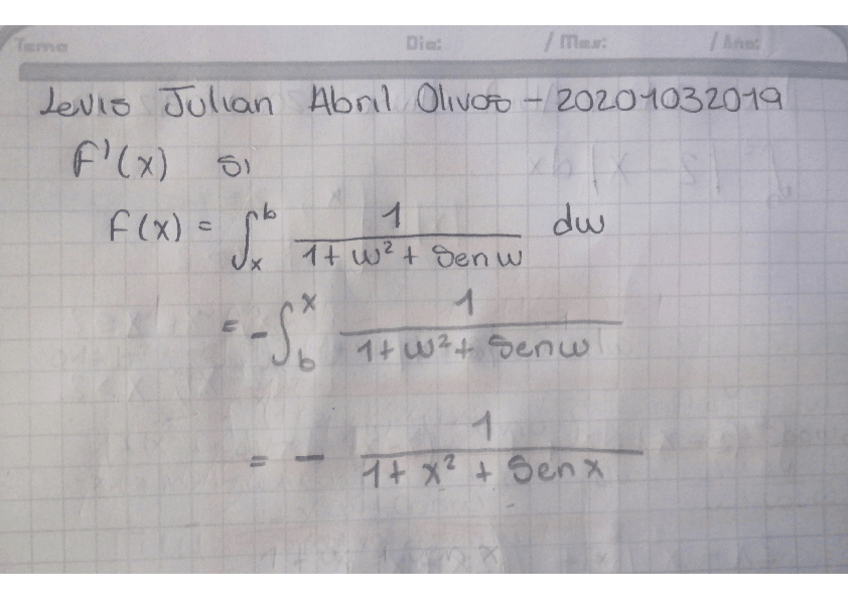 Tema Dia: / Mes: / Año:
Levis Julian Abril Olivos - 20201032019
F'(x) si
F(x) = ∫ₓᵇ 1/(1 + w² + Sen w) dw
= -∫_bˣ 1/(1 + w² + Sen w)
= - 1/(1 + x² + Sen x)